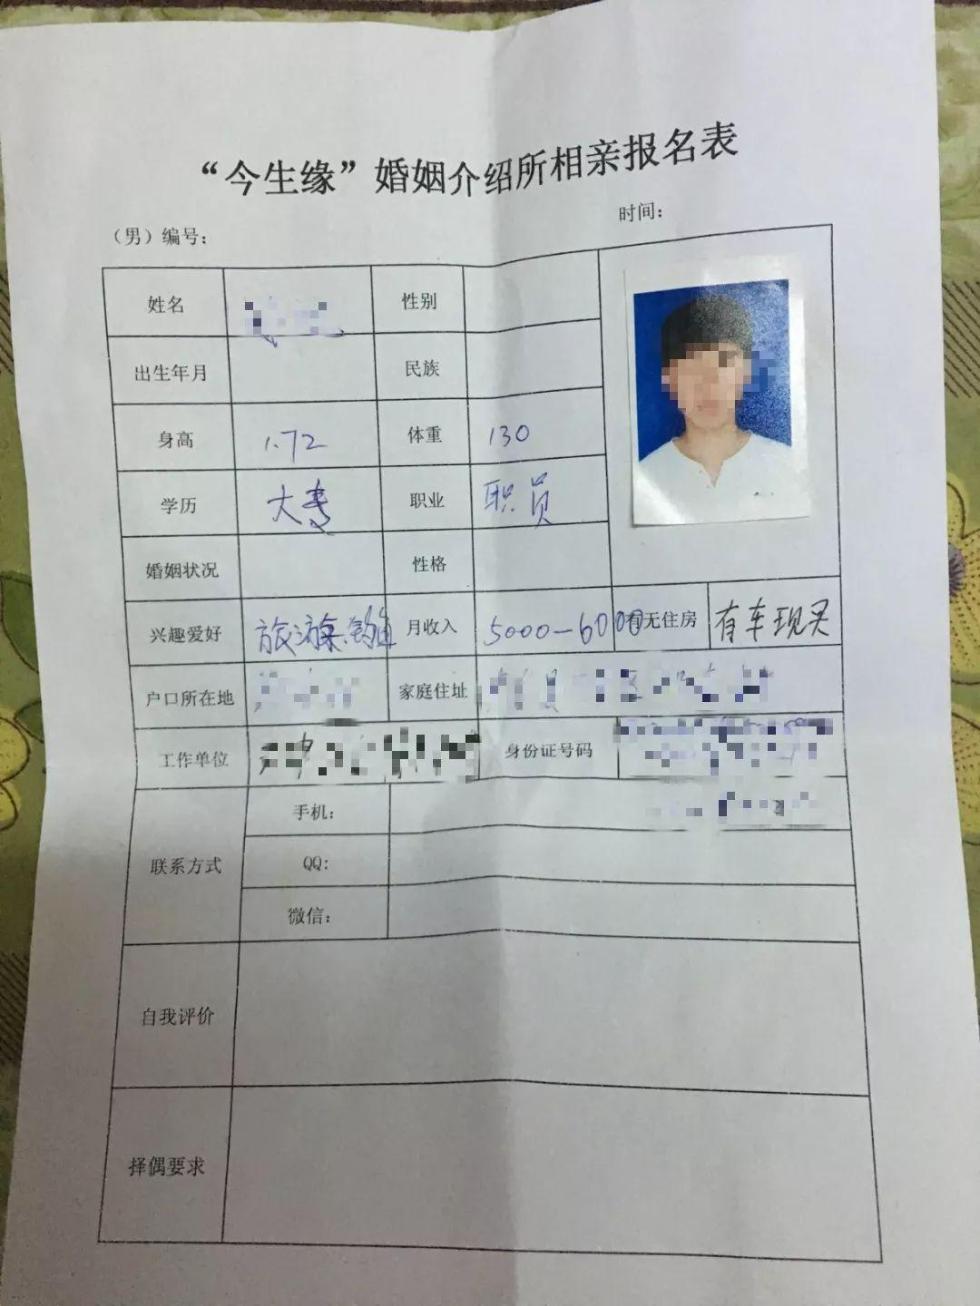 “今生缘”婚姻介绍所相亲报名表
时间：
（男）编号：
姓名 性别
出生年月 民族
身高 1.72 体重 130
学历 大专 职业 职员
婚姻状况 性格
兴趣爱好 旅游 钓鱼 月收入 5000-6000 有无住房 有车现买
户口所在地 家庭住址
工作单位 身份证号码
联系方式 手机：
QQ：
微信：
自我评价
择偶要求